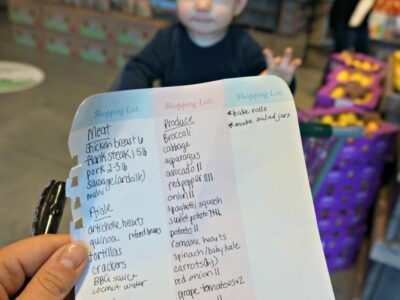 Shopping List:
Meat
chicken breast 6
flank steak 1.5 lb
pork 2-3 lb
sausage (andouille)
Aisle
artichoke hearts
quinoa refried beans
tortillas
crackers
BBQ sauce
coconut water
Shopping List:
Produce
Broccoli
cabbage
asparagus
avocado ||
red pepper ||||
onion ||
spaghetti squash
sweet potato
potato ||
romaine hearts
spinach/baby kale
carrots
red onion ||
grape tomatoes x2
Shopping List:
*bake rolls
*make salad jars